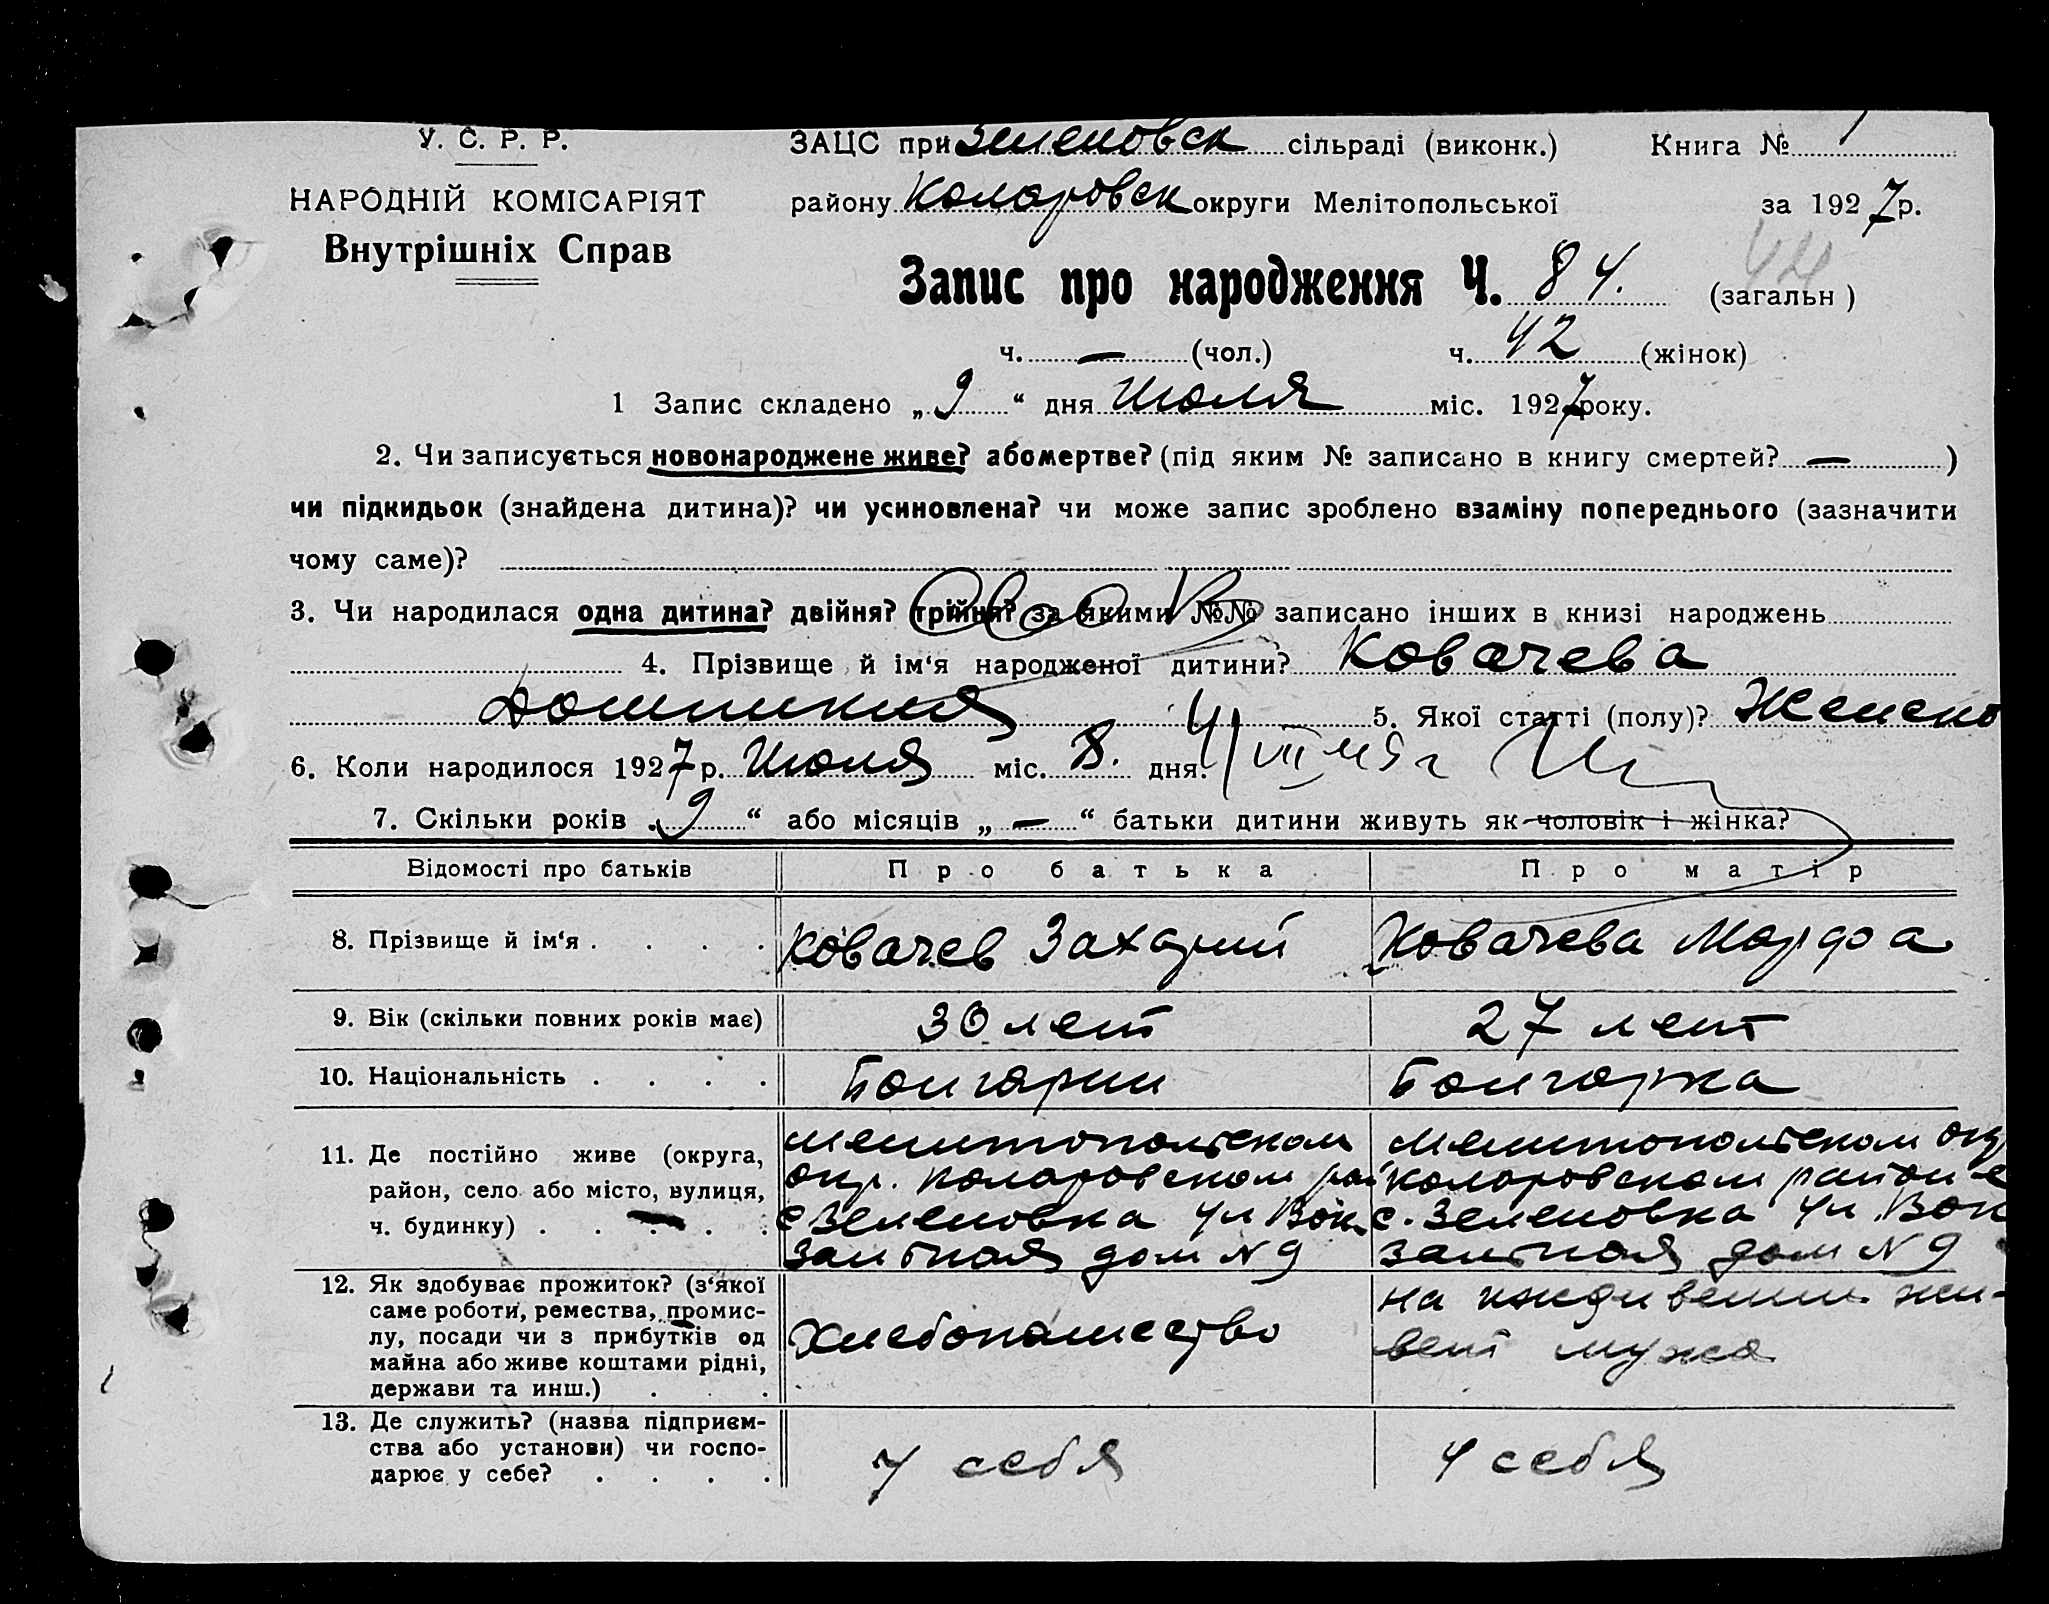 У. С. Р. Р.
НАРОДНІЙ КОМІСАРІЯТ
Внутрішніх Справ
ЗАЦС при Зеленовск сільраді (виконк.) Книга № 1
району Коларовск округи Мелітопольської за 1927 р.
44
Запис про народження Ч. 84. (загальн)
ч. — (чол.) ч. 42 (жінок)
1 Запис складено „ 9 “ дня Июля міс. 1927 року.
2. Чи записується новонароджене живе? або мертве? (під яким № записано в книгу смертей? — )
чи підкидьок (знайдена дитина)? чи усиновлена? чи може запис зроблено взаміну попереднього (зазначити
чому саме)?
3. Чи народилася одна дитина? двійня? трійня? за якими №№ записано інших в книзі народжень
4. Прізвище й ім‘я народженої дитини? Ковачева
Домникия 5. Якої статті (полу)? Женско
6. Коли народилося 1927 р. Июля міс. 8. дня.
7. Скільки років „ 9 “ або місяців „ — “ батьки дитини живуть як чоловік і жінка?
Відомості про батьків Про батька Про матір
8. Прізвище й ім‘я . . . . Ковачев Захарий Ковачева Марфа
9. Вік (скільки повних років має) 30 лет 27 лет
10. Національність . . . . Болгарин Болгарка
11. Де постійно живе (округа,
район, село або місто, вулиця,
ч. будинку) . . . . .
Мелитопольском
окр. Коларовском рай
с Зеленовка ул Вок
зальная дом N 9
Мелитопольском окр
Коларовском районе
с. Зеленовка ул. Вок
зальная дом N 9
12. Як здобуває прожиток? (з‘якої
саме роботи, ремества, промис-
лу, посади чи з прибутків од
майна або живе коштами рідні,
держави та инш.) . . .
Хлебопашество
на иждивении жи-
вет мужа
13. Де служить? (назва підприєм-
ства або установи) чи госпо-
дарює у себе? . . . .
у себя
у себя